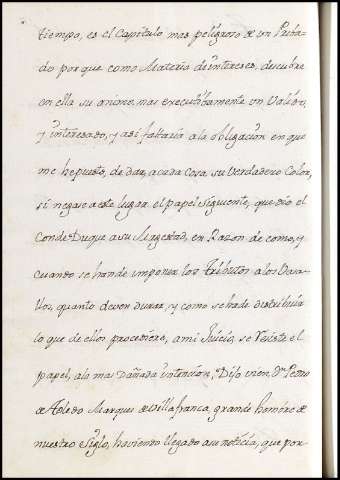 tiempo, es el Capitulo mas peligroso de un Priba-
do por que como Materia de intereses, descubre
en ella su animo, mas executibamente un Valido,
y interesado, y asi faltaria a la obligacion en que
me he puesto, de dar, a cada Cosa su Verdadero Color,
si negase a este lugar el papel siguiente, que dio el
Conde Duque a su Magestad, en Razon de como, y
cuando se han de imponer los tributos a los Vasa-
llos, quanto deven durar, y como se ha de distribuir
lo que de ellos procediere, a mi Juicio, se Resiste el
papel, a la mas dañada intencion, Dijo vien, Dn Pedro
de Toledo Marques de Villafranca, grande hombre de
nuestro Siglo, haviendo llegado a su noticia, que por-